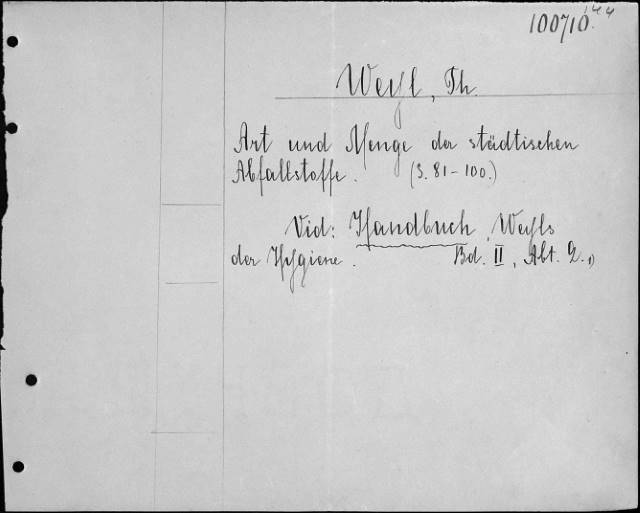 100710.
Weyl, Th.
Art und Menge der städtischen
Abfallstoffe. (S. 81-100.)
Vid: Handbuch, Weyls
der Hygiene. Bd. II, Abt. 2.,